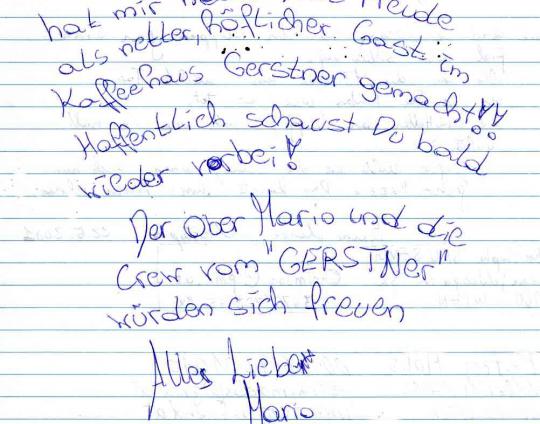 hat mir Freude
als netter, höflicher. Gast im
Kaffeehaus Gerstner gemacht!!!
Hoffentlich schaust Du bald
wieder vorbei!
Der Ober Mario und die
Crew vom "GERSTNer"
würden sich freuen
Alles Liebe
Mario